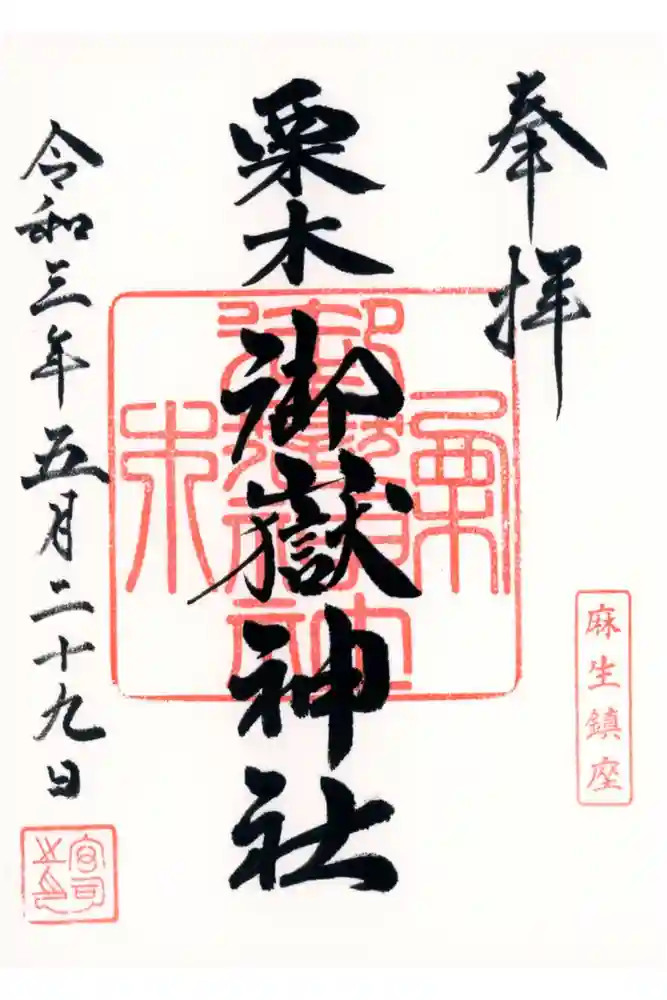 奉拝
麻生鎮座
栗木御嶽神社
令和三年五月二十九日
宮司之印